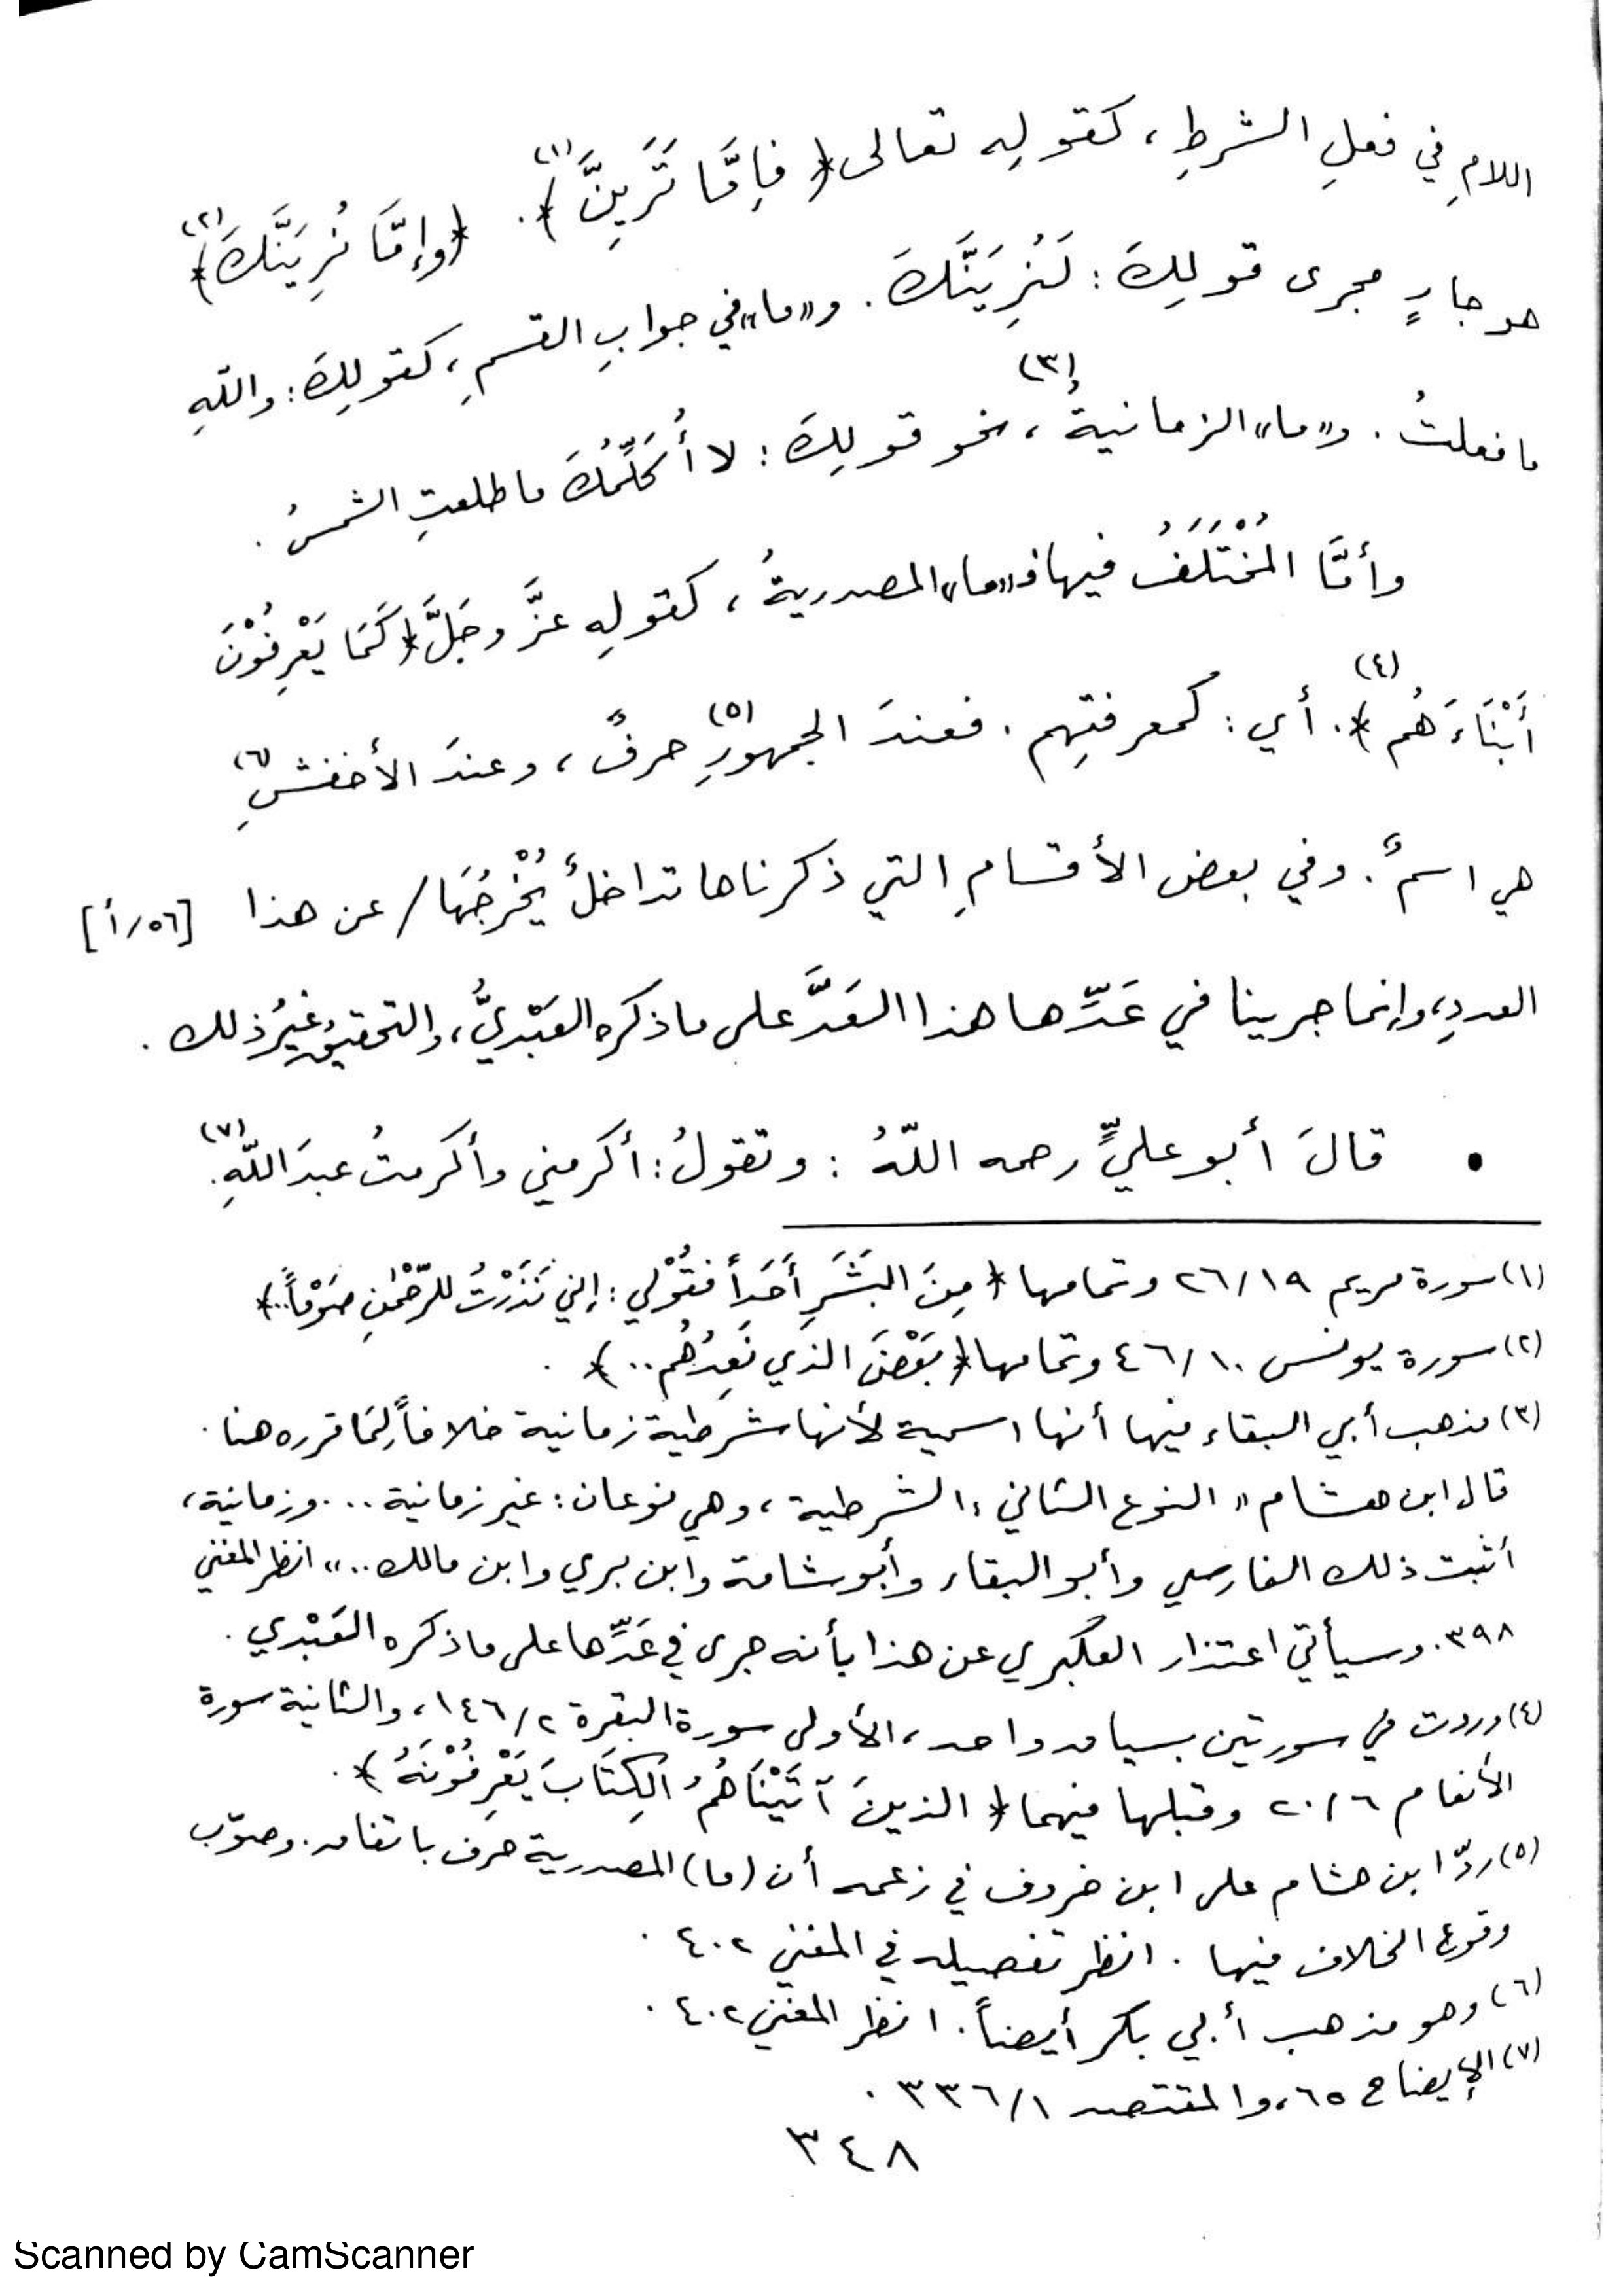 اللامِ في فعلِ الشرطِ، كقولِه تعالى ﴿فَإِمَّا تَرَيِنَّ﴾(١). ﴿وإِمَّا نُرِيَنَّكَ﴾(٢)
هو جارٍ مجرى قولِكَ: لَنُرِيَنَّكَ. و«ما» في جوابِ القسمِ، كقولِكَ: واللّهِ
ما فعلتُ. و«ما» الزمانيةُ(٣)، نحو قولِكَ: لا أُكَلِّمُكَ ما طلعتِ الشمسُ.
وأمَّا المُخْتَلَفُ فيها فـ«ما» المصدريةُ، كقولِهِ عزَّ وجَلَّ ﴿كَمَا يَعْرِفُوْنَ
أَبْنَاءَهُم﴾(٤). أي: كمعرفتِهِم. فعندَ الجمهورِ(٥) حرفٌ، وعندَ الأخفشِ(٦)
هي اسمٌ. وفي بعض الأقسامِ التي ذكرناها تداخلٌ يُخْرِجُهَا / عن هذا [٥٦/أ]
العددِ، وإنما جرينا في عَدِّها هذا العَدَّ على ما ذكره العَبْديُّ، والتحقيقُ غيرُ ذلك.
• قالَ أبو عليٍّ رحمه اللّهُ: وتقولُ: أكرمني وأكرمتُ عبدَ اللّهِ(٧).
(١) سورة مريم ٢٦/١٩ وتمامها ﴿مِنَ البَشَرِ أَحَداً فقُوْلي: إني نَذَرْتُ للرَّحْمٰنِ صَوْماً..﴾
(٢) سورة يونس ٤٦/١٠ وتمامها ﴿بَعْضَ الذي نَعِدُهُم..﴾.
(٣) مذهب أبي البقاء فيها أنها اسمية لأنها شرطية زمانية خلافاً لِمَا قرره هنا.
قال ابن هشام «النوع الثاني: الشرطية، وهي نوعان: غير زمانية... وزمانية،
أثبت ذلك الفارسي وأبو البقاء وأبو شامة وابن بري وابن مالك..» انظر المغني
٣٩٨. وسيأتي اعتذار العكبري عن هذا بأنه جرى في عَدِّها على ما ذكره العَبْدي.
(٤) وردت في سورتين بسياق واحد، الأولى سورة البقرة ١٤٦/٢، والثانية سورة
الأنعام ٢٠/٦ وقبلها فيهما ﴿الذينَ آتَيْنَاهُمُ الكِتَابَ يَعْرِفُوْنَهُ﴾.
(٥) ردّ ابن هشام على ابن خروف في زعمه أن (ما) المصدرية حرف باتفاق. وصوّب
وقوع الخلاف فيها. انظر تفصيله في المغني ٤٠٢.
(٦) وهو مذهب أبي بكر أيضاً. انظر المغني ٤٠٢.
(٧) الإيضاح ٦٥، والمقتصد ٣٣٦/١.
٣٤٨
Scanned by CamScanner